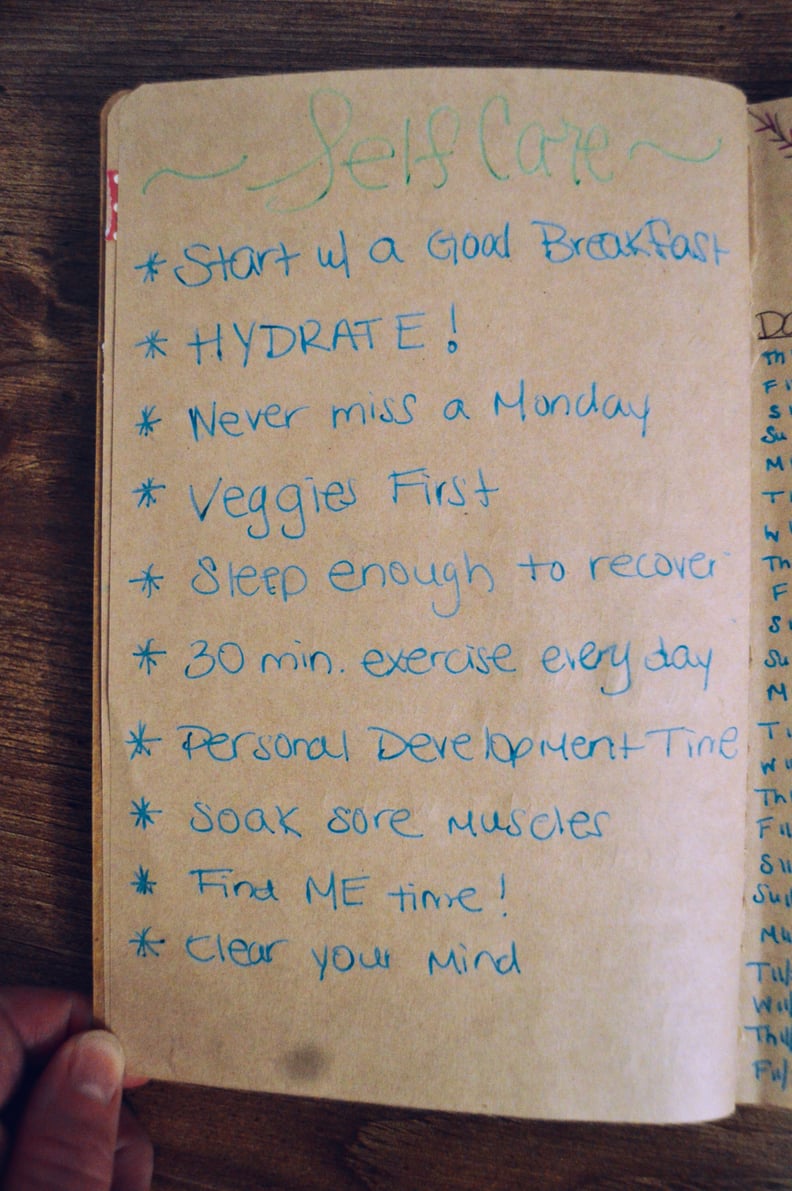 ~ Self Care ~
* Start w/ a Good Breakfast
* HYDRATE!
* Never miss a Monday
* Veggies First
* Sleep enough to recover
* 30 min. exercise every day
* Personal Development Time
* Soak sore Muscles
* Find ME time!
* Clear your Mind
Th
F
S
Su
M
T
W
Th
F
S
Su
M
T
W
Th
F
S
Su
M
T
W
Th
F